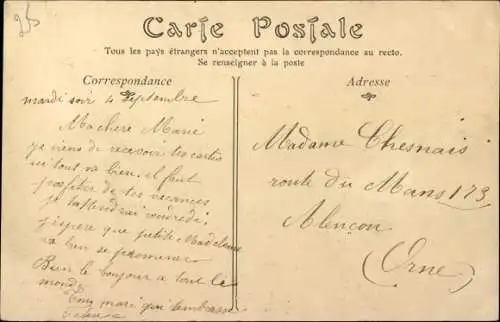 25
Carte Postale
Tous les pays étrangers n'acceptent pas la correspondance au recto.
Se renseigner à la poste
Correspondance
mardi soir 4 Septembre
Ma chère Marie
je viens de recevoir tes cartes
ici tout va bien. il faut
profiter de tes vacances
je t'attendrai vendredi.
j'espère que petite Madeleine
va bien se promener
Bien le bonjour a tout le
monde
Ton mari qui t'embrasse
Adresse
Madame Chesnais
route du Mans 173
Alençon
(Orne)